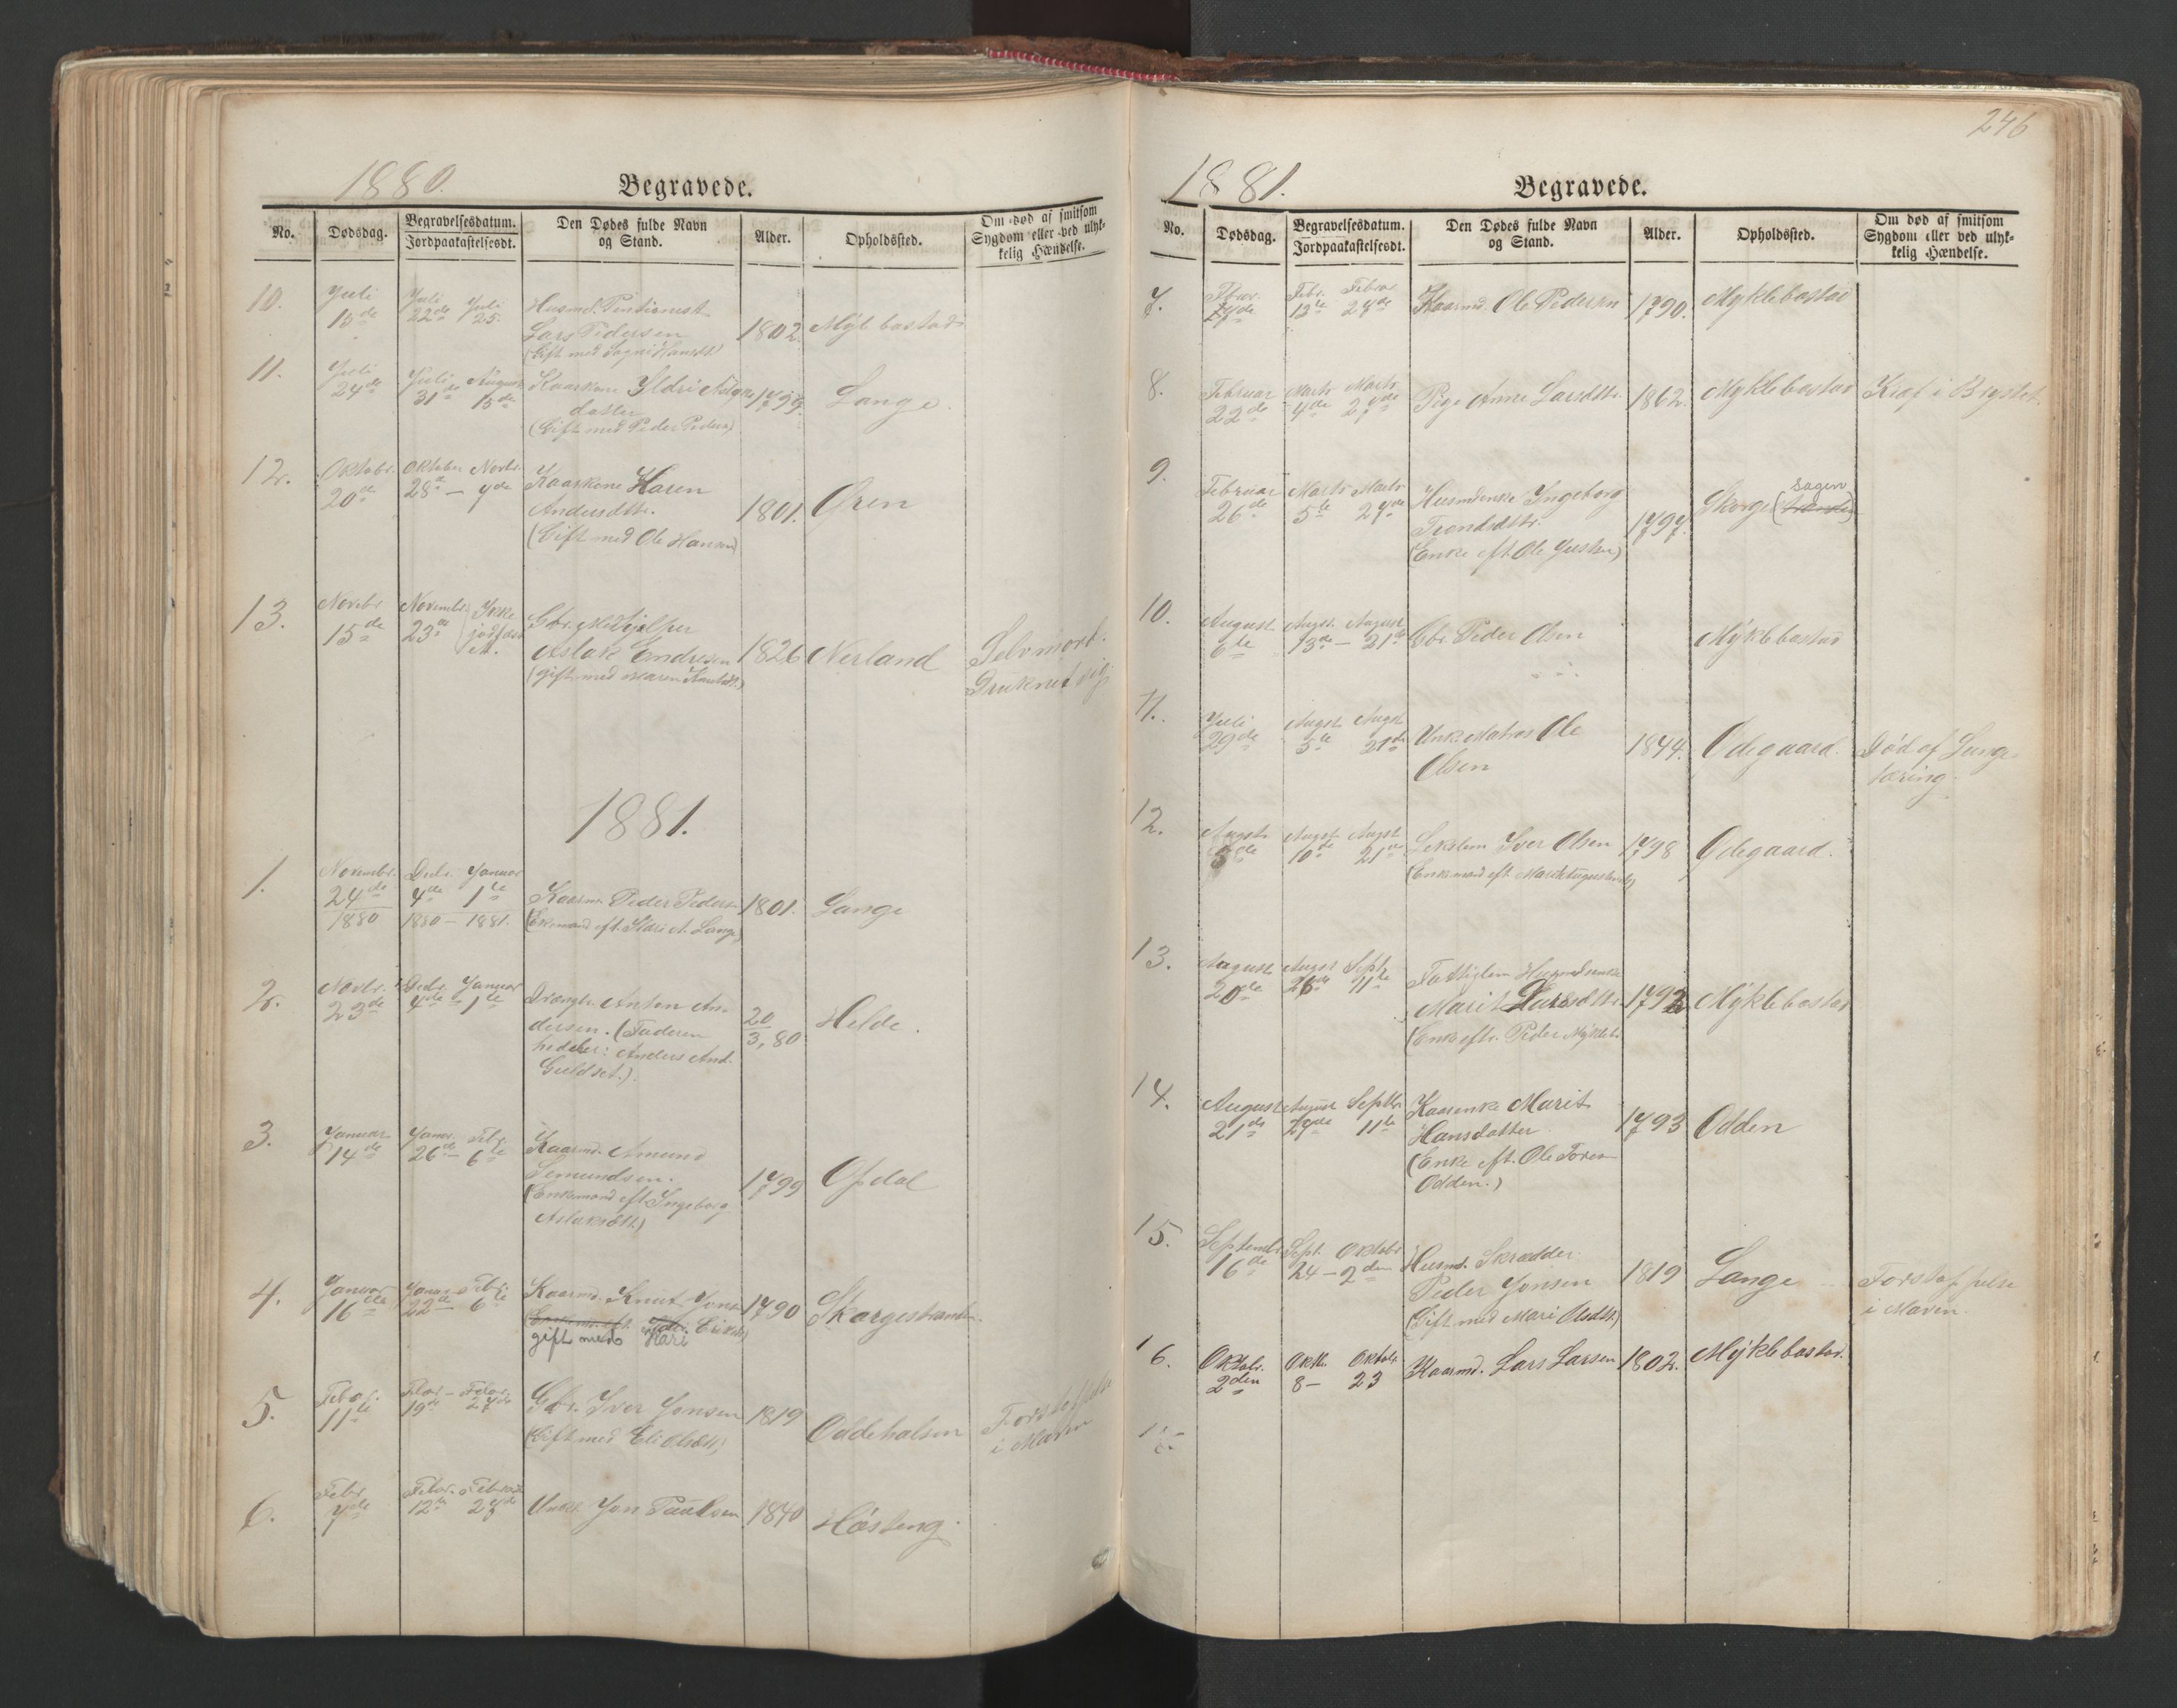 1880.
Begravede.
No.
Dødsdag.
Begravelsesdatum.
Jordpaakastelsesdt.
Den Dødes fulde Navn
og Stand.
Alder.
Opholdssted.
Om død af smitsom
Sygdom eller ved ulyk-
kelig Hændelse.
10.
Juli
15de
Juli Juli
22de 25.
Husmd. Pentionist
Lars Pedersen
(Gift med Hansdt.)
1802.
Myklebostad
11.
Juli
24de
Juli August
31te 15de
Kaarkone Yldri
datter
(Gift med Peder Peders.)
1799.
Lange.
12.
Oktobr.
20de
Oktober Novbr.
28de — 7de
Kaarkone Karen
Andersdtr.
(Gift med Ole Hansen)
1801.
Øren
13.
Novbr
15de
Novembr. Ikke
23de jordfæst
et.
Gbr. Medhjelper
Aslak Endresen
(gift med Maren Knudsdt.)
1826
Nerland
Selvmord.
Druknet sig
1881.
1.
Novembr.
24de
1880
Decbr. Januar
4de 1te
1880 — 1881.
Kaarm. Peder Peders.
(Enkemand eft. Ildri A. Lange)
1801.
Lange
2.
Novbr.
23de
Decbr. Januar
4de — 1te
Drængb. Anton An-
dersen. (Faderen
hedder: Anders And.
Guldset.).
20
3, 80
Helde.
3.
Januar
14de
Januar. Febr.
26de — 6te
Kaarmd. Amund
Semundsen.
(Enkemand eft. Ingeborg
Aslaksdtt.)
1799
Opdal
4.
Januar
16de
Januar Febr.
22de 6te
Kaarmd. Knut Jons.
gift med Kari
1790
Skorgestranden.
5.
Febr.
11te
Febr. — Febr.
19de 27de
Gbr. Iver Jonsen
(Gift med Eli Olsdtt.)
1819
Oddehalsen
Forstoppelse
i Maven
6.
Febr
7de
Febr. Februar
12te 27de
Unkk. Jon Paulsen
1840
Høsteng.
246
1881.
Begravede.
No.
Dødsdag.
Begravelsesdatum.
Jordpaakastelsesdt.
Den Dødes fulde Navn
og Stand.
Alder.
Opholdssted.
Om død af smitsom
Sygdom eller ved ulyk-
kelig Hændelse.
7.
Febr.
Febr. Febr
12te 27de
Kaarmd. Ole Pedersen
1790.
Myklebostad
8.
Februar
22de
Marts Marts
4de 27de
Pige Anne Larsdtr.
1862.
Myklebostad
Kræf i Brystet.
9.
Februar
26de
Marts Marts
5te 27de
Husmdenke Ingeborg
Trondsdtr.
(Enke eft. Ole Justsen)
1797.
Skorge (
10.
August
6te
Augst. August
13de — 21de
Gbr. Peder Olsen
Myklebostad
11.
Juli
29de
Augst. Augst.
5te 21de
Unk. Matros Ole
Olsen
1844.
Ødegaard.
Død af Lunge-
tæring.
12.
Augst.
3de
Augst. Augst.
10de 21de
Lekslem Iver Olsen
1798
Ødegaard.
13.
August
20de
Augst Septr.
26de 11te
Fattiglem Husmdsenke
Marit Larsdtr.
(Enke eftr. Peder Myklebo.
1792
Myklebostad
14.
August
21de
August Septbr.
27de 11te
Kaarenke Marit
Hansdatter
(Enke eft. Ole Tores.
Odden.)
1793
Odden
15.
Septembr.
16de
Sept. Oktobr.
24 — 2den
Husmd. Skrædder
Peder Jonsen
(Gift med Mari Olsdtt.)
1819
Lange
Forstoppelse
i Maven.
16.
Oktobr.
2den
Oktbr. Oktobr.
8 — 23
Kaarmd. Lars Larsen
1802.
Myklebostad.